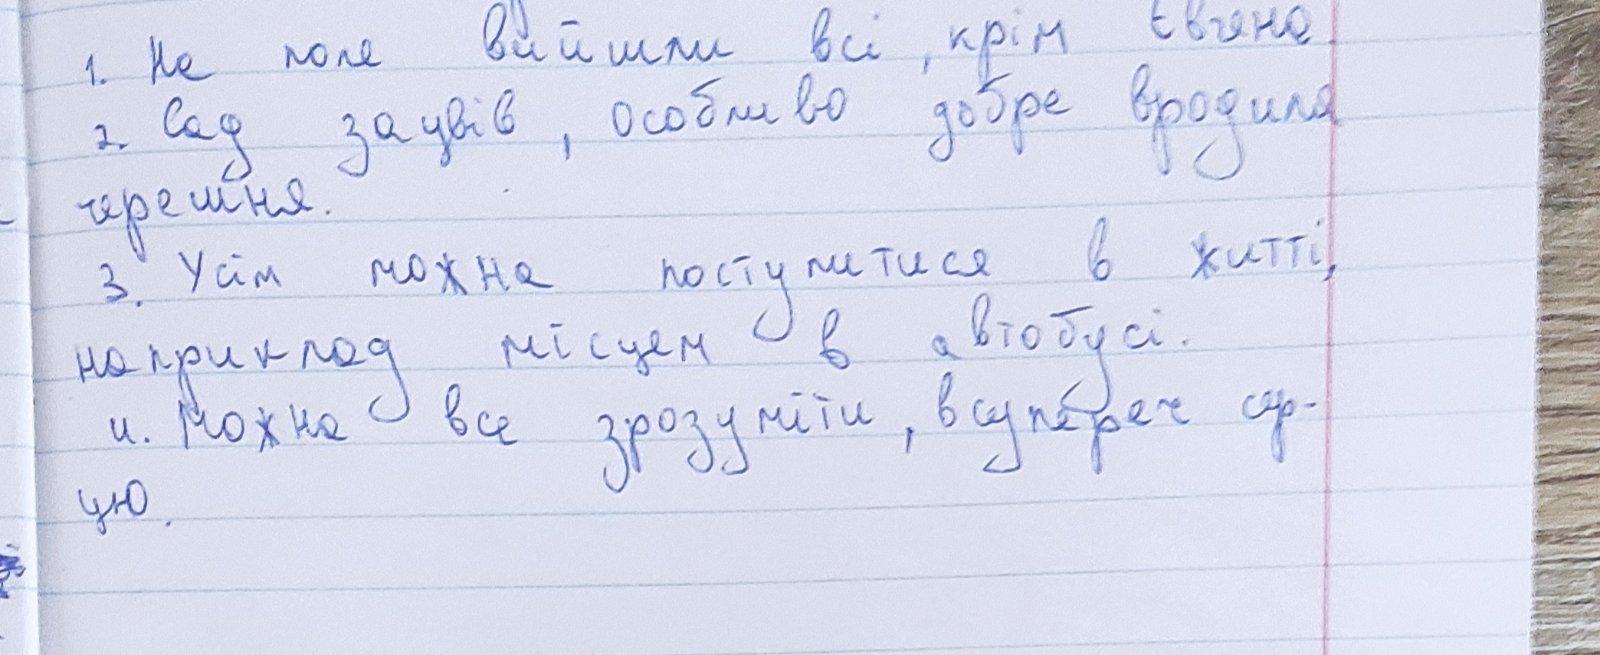 1. На поле вийшли всі, крім Євгена.
2. Сад зацвів, особливо добре вродила
черешня.
3. Усім можна поступитися в житті,
наприклад місцем в автобусі.
4. Можна все зрозуміти, всупереч сер-
цю.